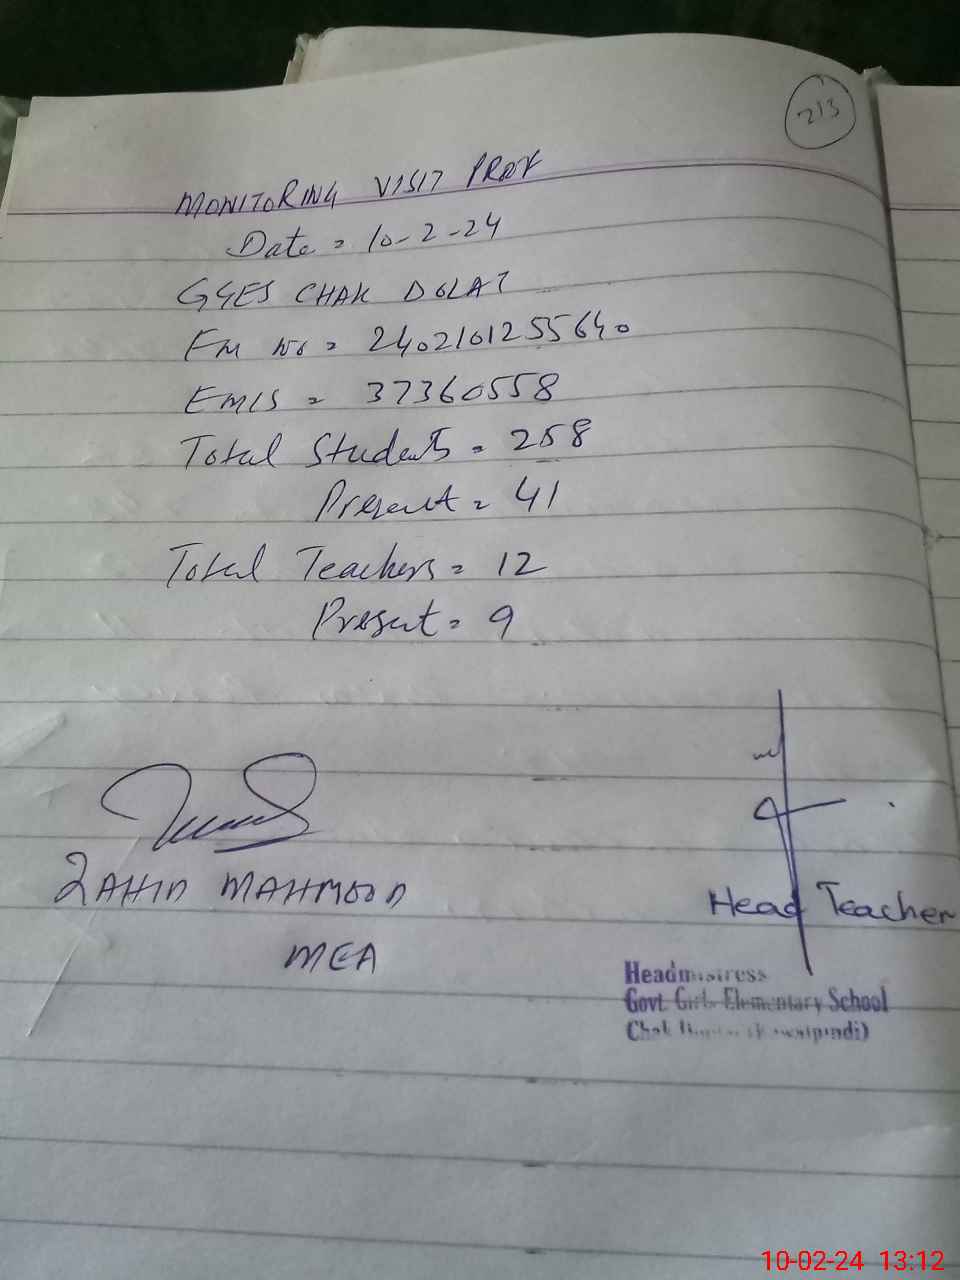 213
MONITORING VISIT PROF
Date = 10-2-24
GGES CHAK DOLAT
Em No = 2402101255640
EMIS = 37360558
Total Students = 258
Present = 41
Total Teachers = 12
Present = 9
ZAHID MAHMOOD
MEA
Head Teacher
Headmistress
Govt. Girls Elementary School
Chak (Rawalpindi)
10-02-24 13:12